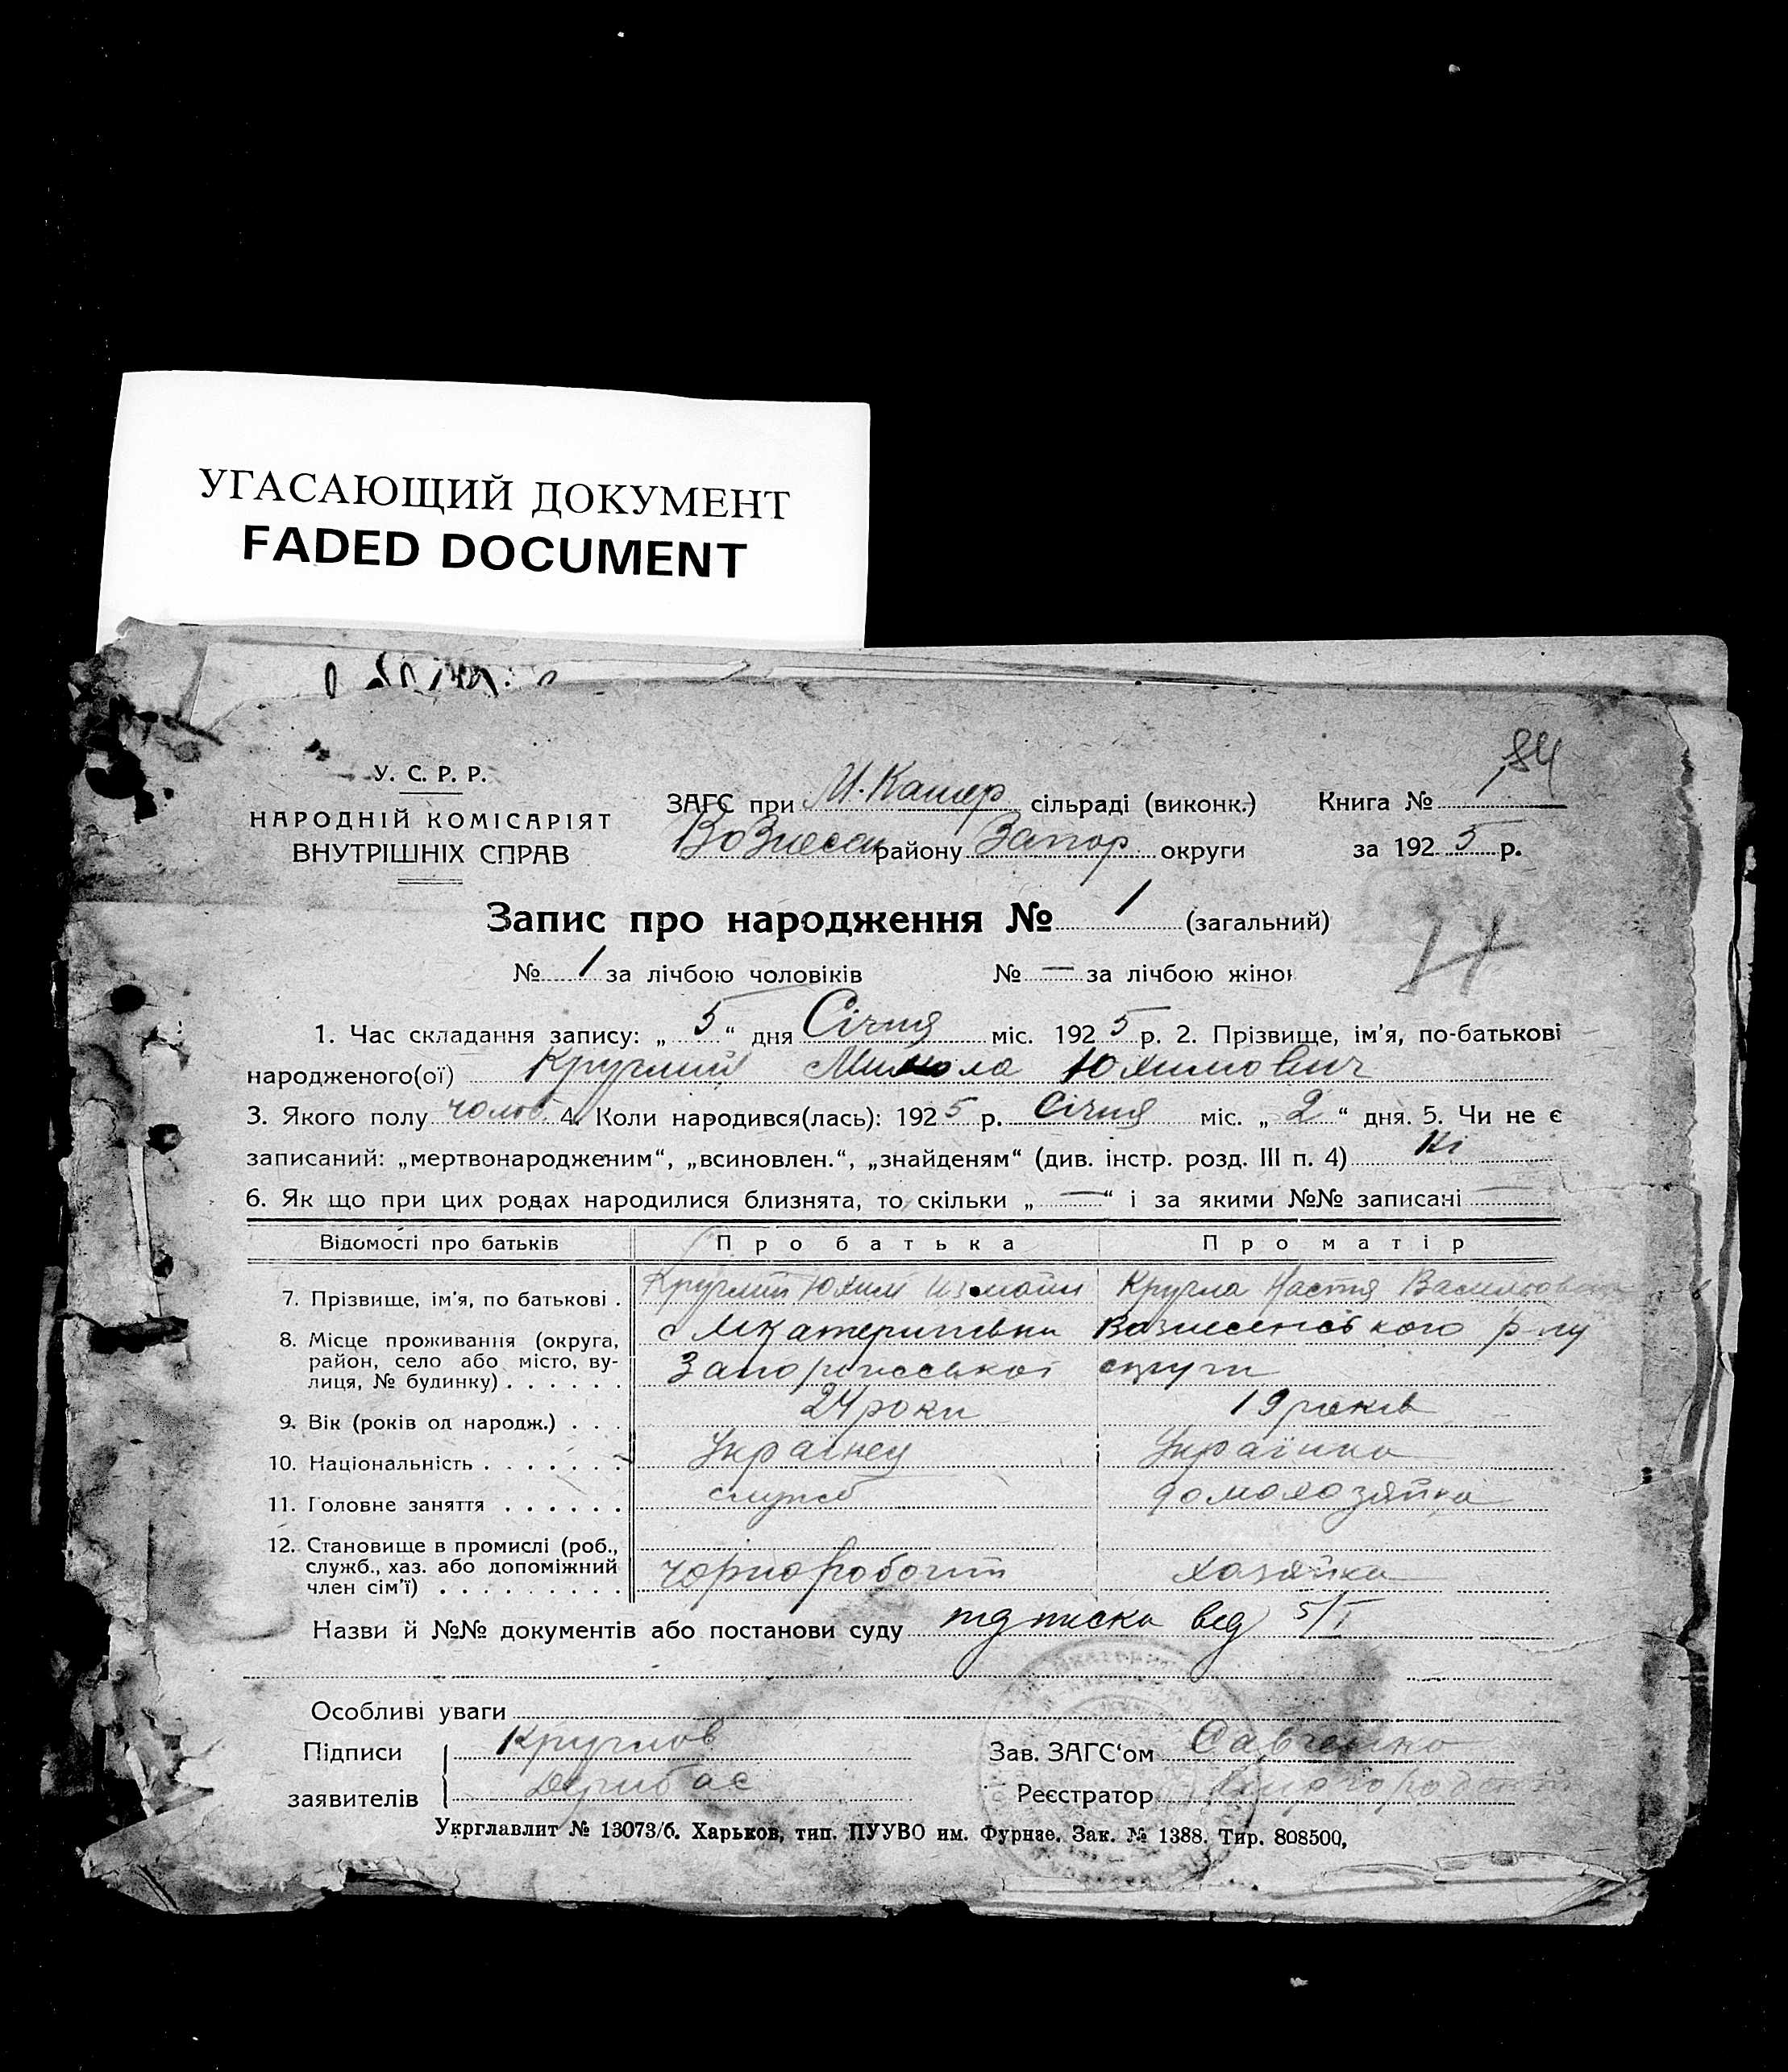 УГАСАЮЩИЙ ДОКУМЕНТ
FADED DOCUMENT
84
У. С. Р. Р.
НАРОДНІЙ КОМІСАРІЯТ
ВНУТРІШНІХ СПРАВ
ЗАГС при М.Катер сільраді (виконк.) Книга №
Вознесен району Запор округи за 1925 р.
Запис про народження № 1 (загальний)
№ 1 за лічбою чоловіків № — за лічбою жінок
1. Час складання запису: „5“ дня Січня міс. 1925 р. 2. Прізвище, ім’я, по-батькові
народженого(ої) Круглий Микола Юхимович
3. Якого полу чолов. 4. Коли народився(лась): 1925 р. Січня міс. „2“ дня. 5. Чи не є
записаний: „мертвонародженим“, „всиновлен.“, „знайденям“ (див. інстр. розд. III п. 4) Ні
6. Як що при цих родах народилися близнята, то скільки „—“ і за якими №№ записані —
Відомості про батьків Про батька Про матір
7. Прізвище, ім’я, по батькові . Круглий Юхим Измайл Кругла Настя Васильовна
8. Місце проживання (округа, с Мкатеринівки Вознесенського р-ну
район, село або місто, ву-
лиця, № будинку) . . . . . . Запоріжської округи
9. Вік (років од народж.) . . . 24 роки 19 років
10. Національність . . . . . . . Українец Українка
11. Головне заняття . . . . . . служб домохозяйка
12. Становище в промислі (роб.,
служб., хаз. або допоміжний
член сім’ї) . . . . . . . . . чорноробочий хазяйка
Назви й №№ документів або постанови суду підписка від 5/I
Особливі уваги
Підписи Круглов Зав. ЗАГС‘ом Савченко
заявителів Дерибас Реєстратор
Укрглавлит № 13073/б. Харьков, тип. ПУУВО им. Фурнзе. Зак. № 1388. Тир. 808500,